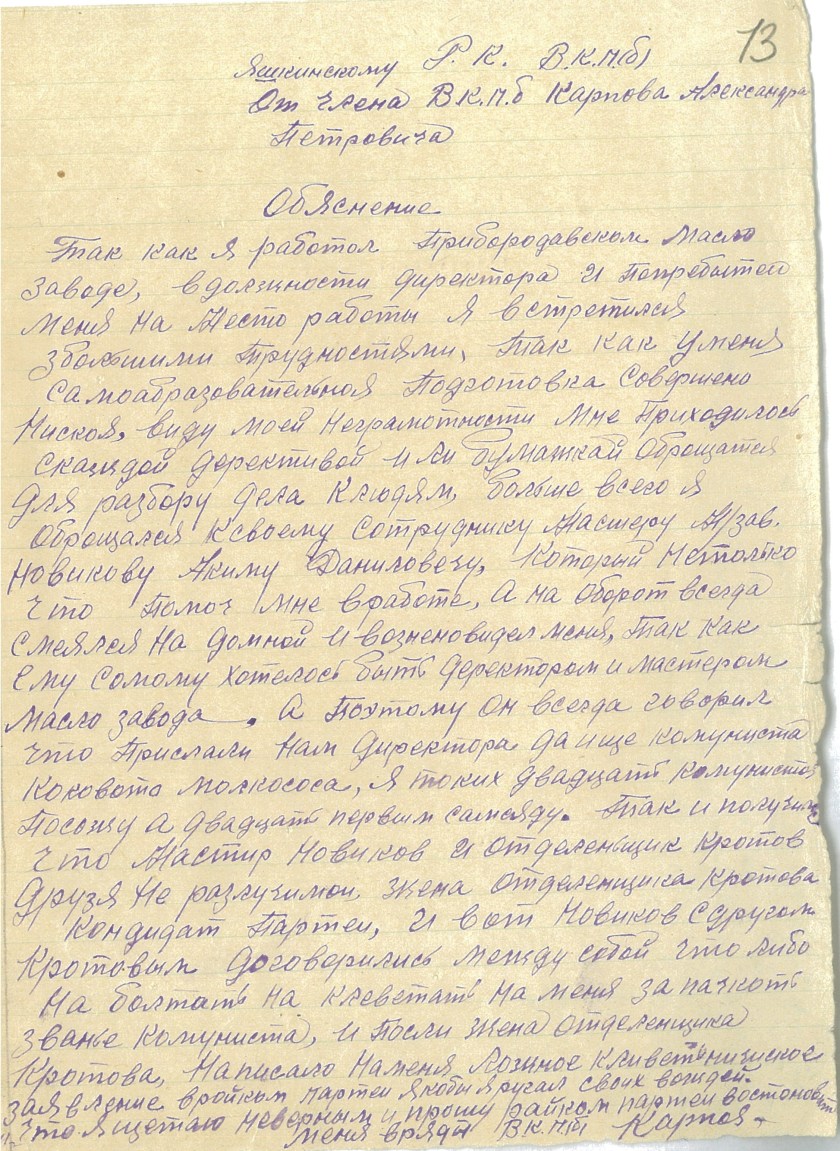 13
Яшкинскому Р.К. В.К.П.(б)
От члена В.К.П.б Карпова Александра
Петровича
Обяснение
Так как я работол Прибородавском Масло
заводе, вдолжности директора и Попребытеи
меня на Место работы я встретился
збольшими Трудностями, Так как уменя
самообразовательноя Подготовка Совершено
Ниская, виду моей Неграмотности Мне Приходилось
скаждой дерективой или бумажкай обращатся
для разбору дела Клюдям, больше всего я
оброщался Ксвоему сотруднику Мастеру М/зав.
Новикову Акиму Даниловечу, Который Нетолько
что Помоч мне вработе, А на оборот всегда
смеялся на домной и возненовидел меня, Так как
ему сомому хотелось быть деректором и мастером
масло завода. А Поэтому он всегда говорил
что Прислали нам директора да ище комуниста
коковото молкососа, я токих двадцать комунистов
Посожу а двадцать первым самсяду. Так и получилось
что Мастир Новиков и отделеньщик Кротов
друзя Не разлучимои жена отделенщика Кротова
Кондидат Партеи, и вот Новиков Сдругом
Кротовым договорились между собой что либо
На болтать на клеветать на меня запачкоть
званье комуниста, и Посли жена отделенщика
Кротова, Написало Наменя ложное
заявление вройком партеи якобы я ругал своих вождей.
Что я щетаю Неверным и прошу райком партеи востоновить
меня вряды В.К.П.(б) Карпов